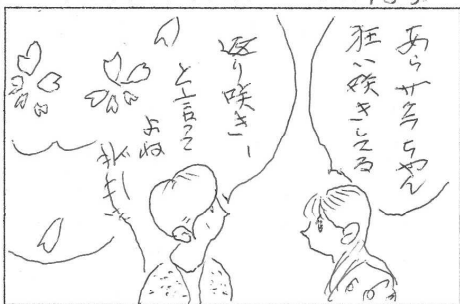 あらサクラちゃん
狂い咲きしてる
返り咲きー
と言って
よね